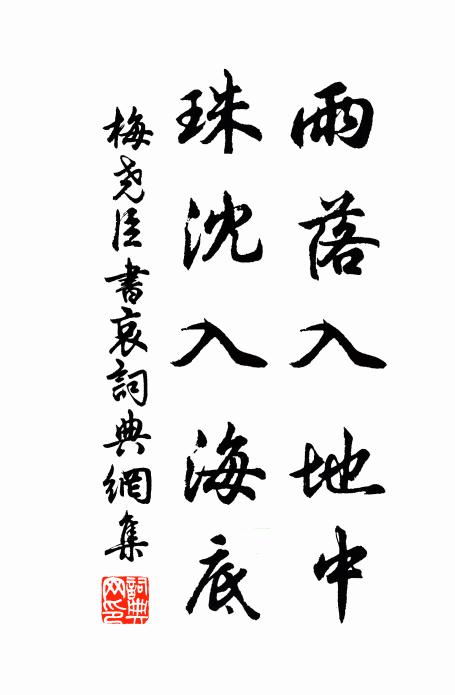 雨落入地中
珠沈入海底
梅尧臣書哀詞典網集
詞典網印